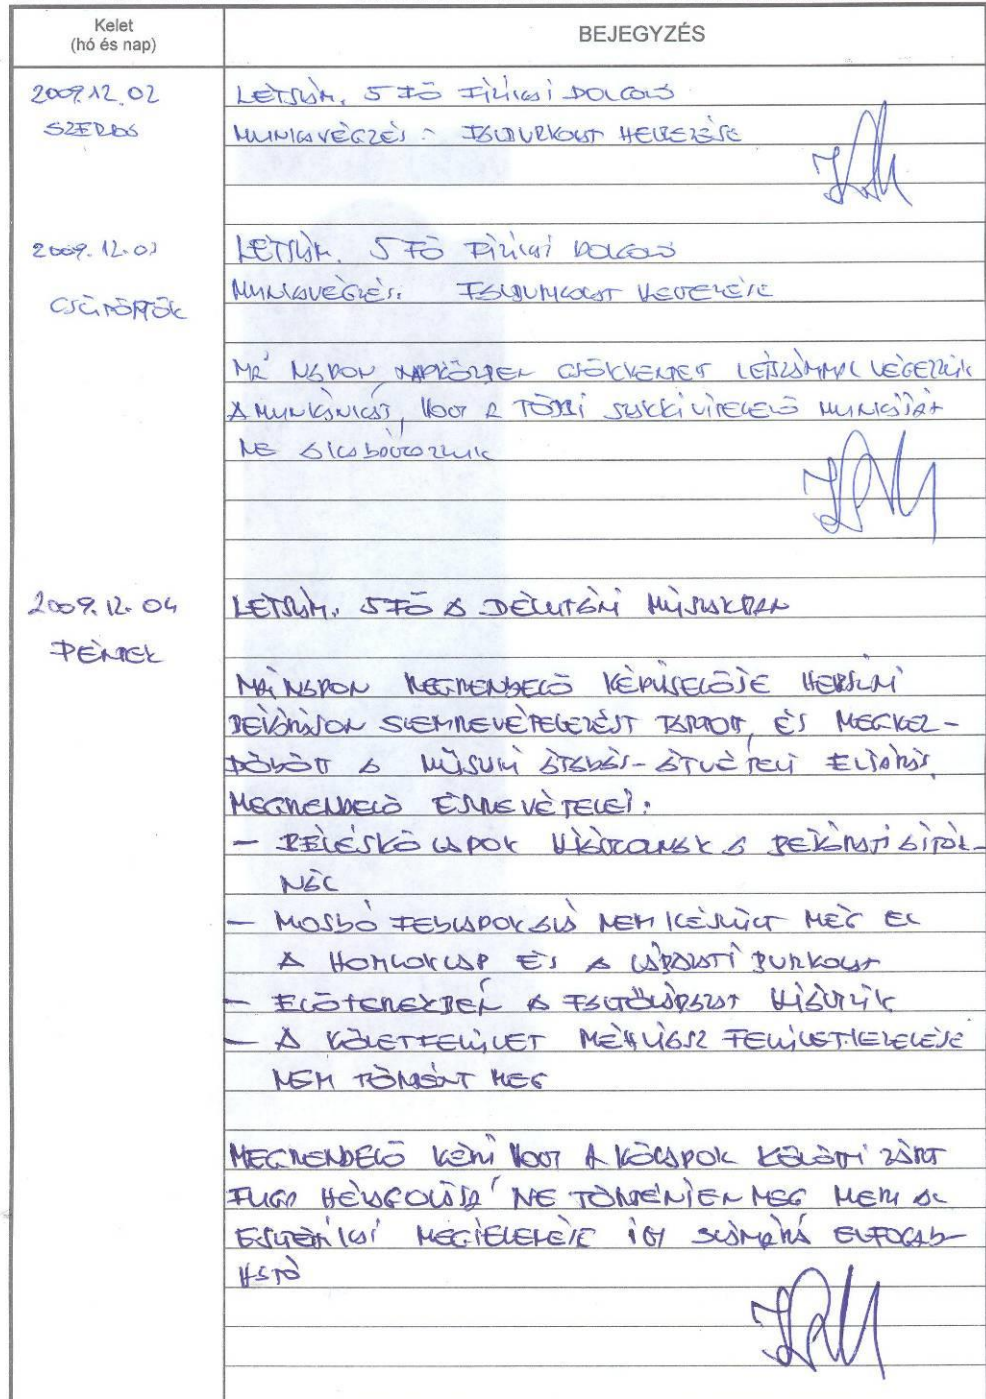 Kelet
(hó és nap)
BEJEGYZÉS
2009.12.02
SZERDA
LÉTSZÁM: 5 FŐ FIZIKAI DOLGOZÓ
MUNKAVÉGZÉS: FALBURKOLAT HELYEZÉSE
2009.12.03
CSÜTÖRTÖK
LÉTSZÁM: 5 FŐ FIZIKAI DOLGOZÓ
MUNKAVÉGZÉS:
MA NAPON NAPKÖZBEN CSÖKKENTETT LÉTSZÁMMAL VÉGEZZÜK
A MUNKÁNKAT, HOGY A TÖBBI SZAKKIVITELEZŐ MUNKÁJÁT
NE AKADÁLYOZZUK
2009.12.04
PÉNTEK
LÉTSZÁM: 5 FŐ A DÉLUTÁNI MŰSZAKBAN
MAI NAPON MEGRENDELŐ KÉPVISELŐJE HELYSZÍNI
BEJÁRÁSON SZEMREVÉTELEZÉST TARTOTT, ÉS MEGKEZ-
DŐDÖTT A MŰSZAKI ÁTADÁS-ÁTVÉTELI ELJÁRÁS
MEGRENDELŐ ÉSZREVÉTELEI:
- BÉLÉSKŐ LAPOK HIÁNYOZNAK A BEJÁRATI AJTÓK-
NÁL
- MOSDÓ FEDLAPOK ALÁ NEM KÉSZÜLT MÉG EL
A HOMLOKLAP ÉS A LÁBAZATI BURKOLAT
- ELŐTEREKBEN A FALTŐLÁBAZAT HIÁNYZIK
- A KŐZETFELÜLET MÉHVIASZ FELÜLETKEZELÉSE
NEM TÖRTÉNT MEG
MEGRENDELŐ KÉRI HOGY A KŐLAPOK KÖZÖTTI ZÁRT
FUGA NE TÖRTÉNJEN MEG MERT AZ
ESZTÉTIKAI MEGJELENÉSE ÍGY SZÁMÁRA ELFOGAD-
HATÓ